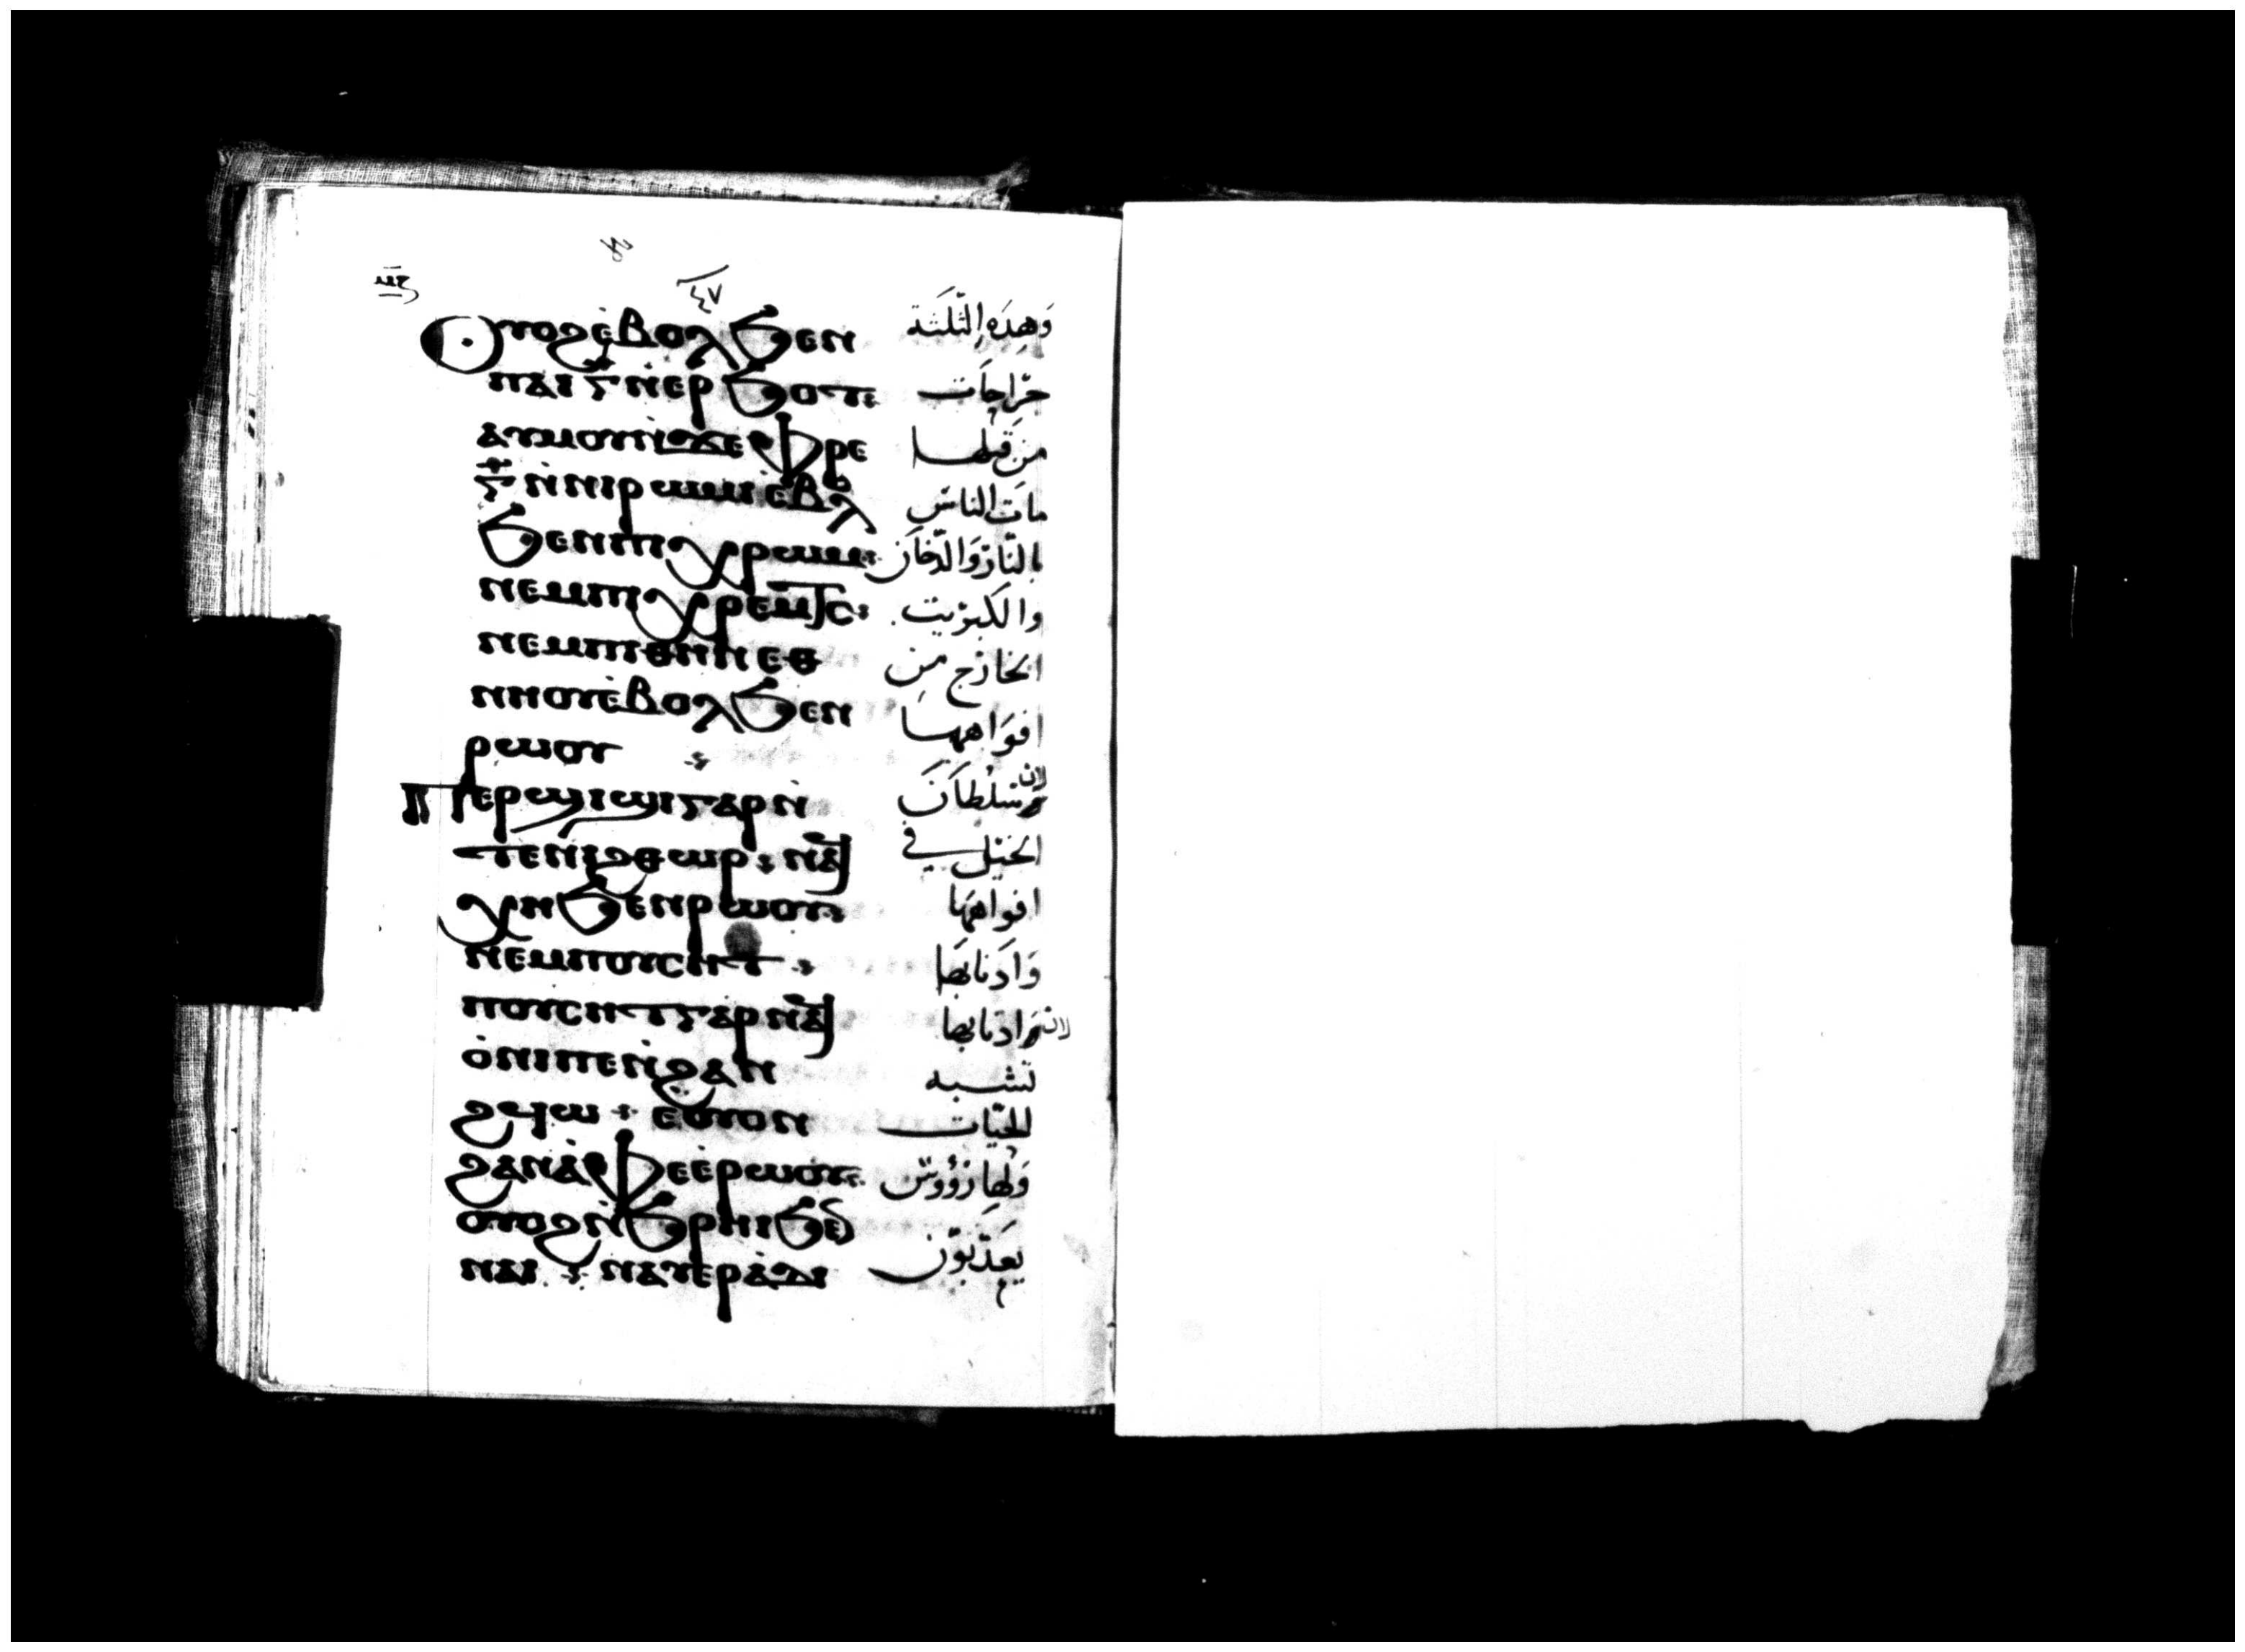 ⲙⲍ
٤٧
Ⲟⲩⲟϩ ⲉ̀ⲃⲟⲗ ϧⲉⲛ
ⲡⲁⲓ ⲅ̅ ⲛ̀ⲉⲣϧⲟⲧ
ⲁⲩⲙⲟⲩ ⲛ̀ϫⲉ ⲫⲣⲉ
ⲅ̅ ⲛ̀ⲛⲓⲣⲱⲙⲓ ⲉ̀ⲃⲟⲗ
ϧⲉⲛ ⲡⲓⲭⲣⲱⲙ
ⲛⲉⲙ ⲡⲓⲭⲣⲉⲙⲧⲥ:
ⲛⲉⲙ ⲡⲓⲑⲏⲛ ⲉⲑ
ⲛⲏⲟⲩ ⲉ̀ⲃⲟⲗ ϧⲉⲛ
ⲣⲱⲟⲩ
ⲡⲉⲣϣⲓϣⲓ ⲅⲁⲣ ⲛ̀
ⲧⲉ ⲛⲓϩⲑⲱⲣ: ⲛⲁϥ
ⲭⲏ ϧⲉⲛ ⲣⲱⲟⲩ
ⲛⲉⲙ ⲡⲟⲩⲥⲏⲧ
ⲡⲟⲩⲥⲏⲧ ⲅⲁⲣ ⲛⲁϥ
ⲟ̀ⲛⲓ ⲡⲉ ⲛ̀ϩⲁⲛ
ϩϥⲱ: ⲉⲟⲩⲟⲛ
ϩⲁⲛⲁ̀ⲫⲉ ⲉ̀ⲣⲱⲟⲩ
ⲟⲩⲟϩ ⲛ̀ϧⲣⲏⲓ ϧⲉⲛ
ⲛⲁⲓ: ⲛⲁⲩⲉⲣⲁ̀ⲇⲓ
وَهذِه الثَلثة
جرَاحَات
من قبلها
مات الناس
بالنّار وَالدّخان
والكبريت.
الخارج من
افوَاهها
لان سُلطان
الخيل في
افواهها
وَاذنابهَا
لان اذنابها
تشبه
الحيّات
وَلها رؤوس
يعَذّبوُن